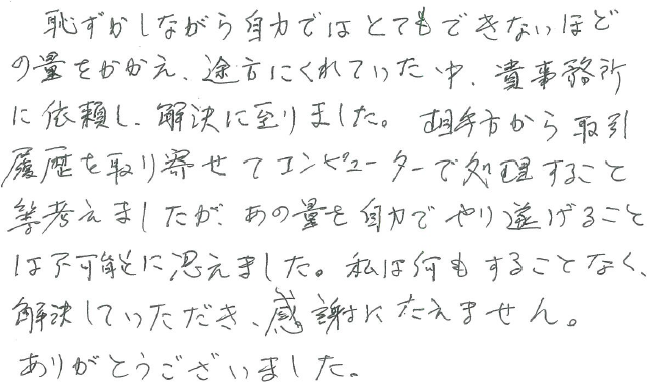 恥ずかしながら自力ではとてもできないほど
の量をかかえ、途方にくれていた中、貴事務所
に依頼し、解決に至りました。相手方から取引
履歴を取り寄せてコンピューターで処理すること
等考えましたが、あの量を自力でやり遂げること
は不可能に思えました。私は何もすることなく、
解決していただき、感謝にたえません。
ありがとうございました。